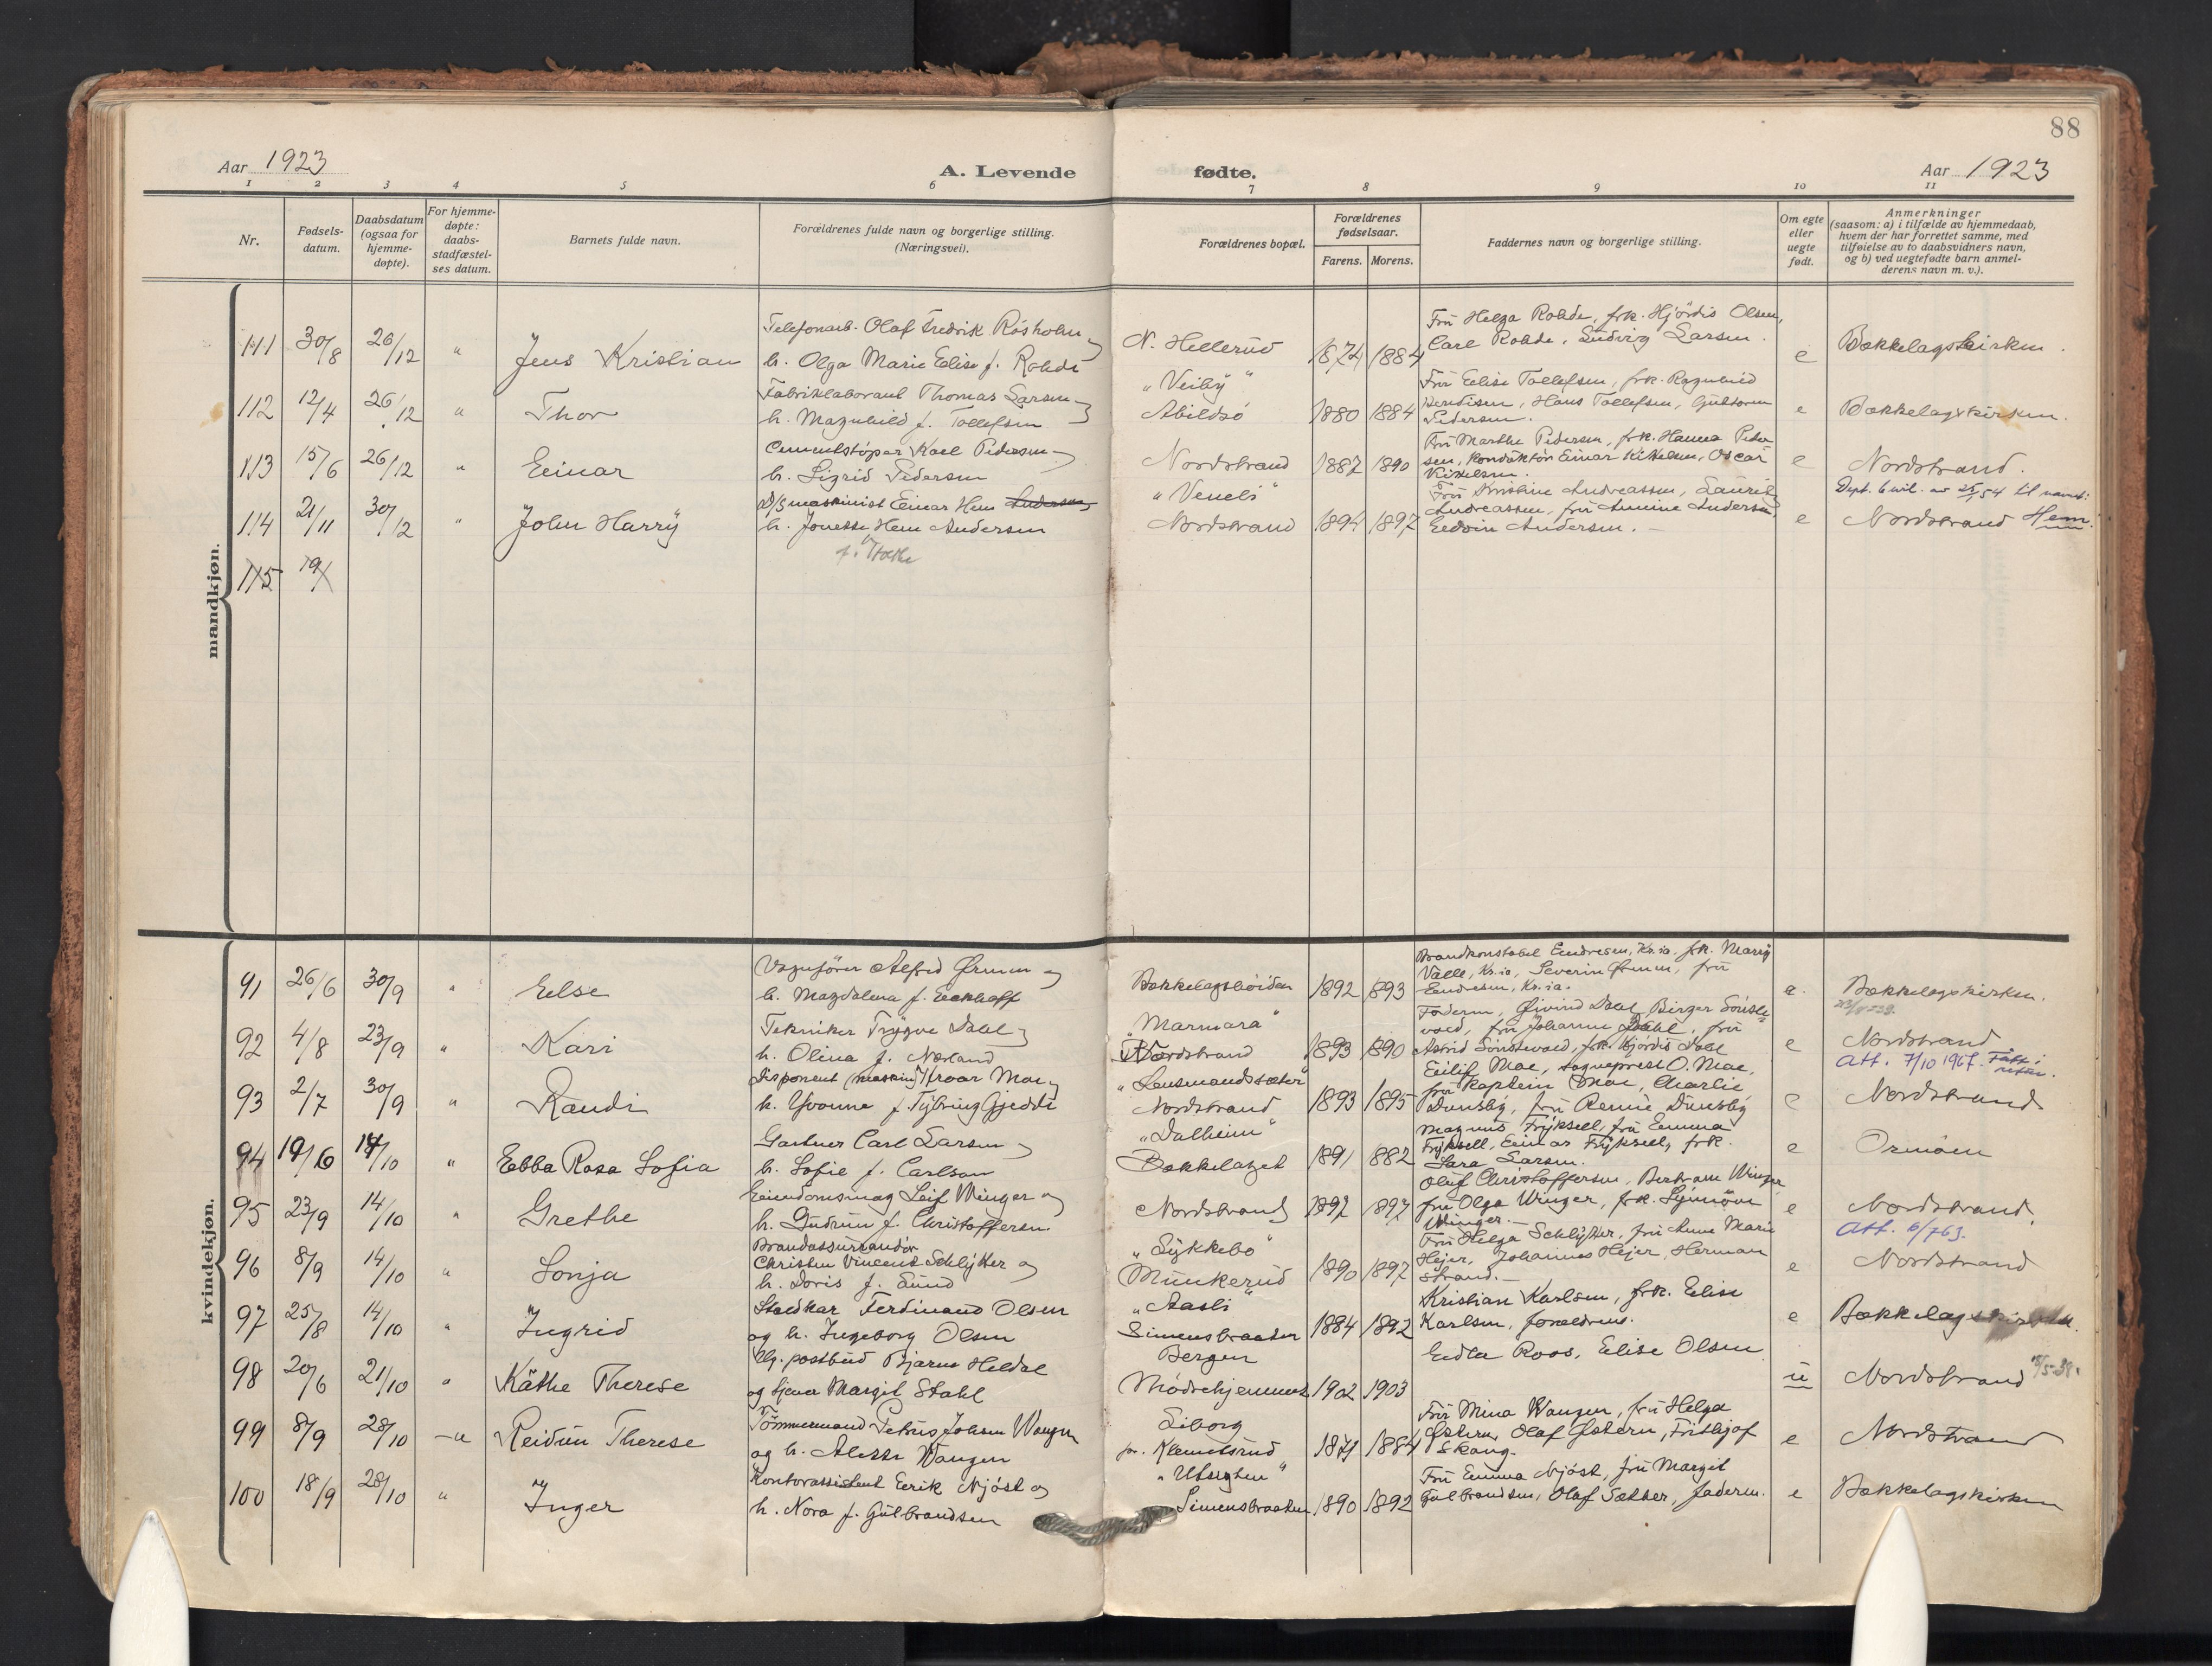 88
Aar 1923
A. Levende
fødte.
Aar 1923
1 2 3 4 5 6 7 8 9 10 11
Nr.
Fødsels-
datum.
Daabsdatum
(ogsaa for
hjemme-
døpte).
For hjemme-
døpte:
daabs-
stadfæstel-
ses datum.
Barnets fulde navn.
Forældrenes fulde navn og borgerlige stilling.
(Næringsvei).
Forældrenes bopæl.
Forældrenes
fødselsaar.
Farens. Morens.
Faddernes navn og borgerlige stilling.
Om egte
eller
uegte
født.
Anmerkninger
(saasom: a) i tilfælde av hjemmedaab,
hvem der har forrettet samme, med
tilføielse av to daabsvidners navn,
og b) ved uegtefødte barn anmel-
derens navn m. v.).
mandkjøn.
111 30/8 26/12 " Jens Kristian
Telefonarb. Olaf Fredrik Rösholm
h. Olga Marie Elise f. Rohde
N. Hellerud
1874 1884
Fru Helga Rohde, frk. Hjördis Olsen,
Carl Rohde, Ludvig Larsen.
e Bækkelagskirken.
112 12/4 26/12 " Thor
Fabriklaborant Thomas Larsen
h. Magnhild f. Tollefsen
"Veiby"
Abildsö
1880 1884
Fru Elise Tollefsen, frk. Ragnhild
Hans Tollefsen, Guttorm
Pedersen.
e Bækkelagskirken.
113 15/6 26/12 " Einar
Cementstöper Karl Pedersen
h. Sigrid Pedersen
Nordstrand
1887 1890
Fru Marthe Pedersen, frk. Hanna Peder
sen, Konduktör Einar Kihelsen, Oscar
e Nordstrand.
114 21/11 30/12 " John Harry
D/S maskinist Einar Hem Andersen
h. Jonette Hem Andersen
f. Holthe
"Venli"
Nordstrand
1894 1897
Fru Kristine Andreassen, Laurits
Andreassen, fru Annine Andersen,
Edvin Andersen.
e Nordstrand
Dept. bevil. av 25/1 54 til navnet:
Hem.
115 19/
kvindekjøn.
91 26/6 30/9 " Else
Vognfører Alfred Ørmen og
h. Magdalena f. Eckhoff
Bækkelagshöiden
1892 1893
Brandkonstabel Endresen, Kr.ia. frk. Marry
Valle, Kr.ia, Severin Ørmen, fru
Endresen, Kr.ia.
e. Bækkelagskirken.
92 4/8 23/9 " Kari
Tekniker Trygve Dahl
h. Olina f. Nærland
"Marmara"
Nordstrand
1893 1890
Faderen, Øivind Dahl, Birger Sönste
vold, fru Johanne Dahl, fru
Astrid Sönstevold, frk. Hjördis Dahl
e Nordstrand
93 2/7 30/9 " Randi
Disponent (maskin) Hroar Moe
h. Yvonne f. Tybring Gjedde
"Lensmandssæter"
Nordstrand
1893 1895
Eilif Moe, sogneprest O. Moe,
fru Kaptein Moe, Charlie
Dunsby, fru Rennie Dunsby
e Nordstrand
Att. 7/10 1967.
94 19/6 14/10 " Ebba Rosa Sofia
Gartner Carl Larsen
h. Sofie f. Carlson
"Dalheim"
Bækkelaget
1891 1882
Magnus Fryksell, fru Emma
Fryksell, Einar Fryksell, frk.
Sara Larsen.
e Ormöen
95 23/9 14/10 " Grethe
Eiendomsmæg. Leif Winger og
h. Gudrun f. Christoffersen
Nordstrand
1892 1897
Oluf Christoffersen, Bertram Winger
fru Olga Winger, frk. Synnöve
Winger.
e Nordstrand.
96 8/9 14/10 " Sonja
Brandassurandör
Christen Vincent Schlytter og
h. Doris f. Lund
"Lykkebo"
Munkerud
1890 1897
Fru Helga Schlytter, fru Anne Marie
Hejer, Johannes Hejer, Herman
Strand.
e Nordstrand
Att. 6/7 63.
97 25/8 14/10 " Ingrid
Staldkar Ferdinand Olsen
og h. Ingeborg Olsen
"Aasli"
Simensbraaten
1884 1892
Kristian Karlsen, frk. Elise
Karlsen, foreldrene.
e Bækkelagskirken.
98 20/6 21/10 " Käthe Therese
postbud Bjarne Heldal
og tjener Margit Stahl
Bergen
Mödrehjemmet
1902 1903
Endla Roos, Elise Olsen
u Nordstrand
99 8/9 28/10 " Reidun Therese
Tömmermand Petrus Johsen Wangen
og h. Alette Wangen
Liborg
pr. Klemetsrud
1879 1884
Fru Mina Wangen, fru Helga
Østern, Olaf Østern, Frithjof
Skaug.
e Nordstrand
100 18/9 28/10 " Inger
Kontorassistent Erik Njöst og
h. Nora f. Gulbrandsen
"Utsigten"
Simensbraaten
1890 1892
Fru Emma Njöst, fru Margit
Gulbrandsen, Olaf Sæther, faderen.
e Bækkelagskirken